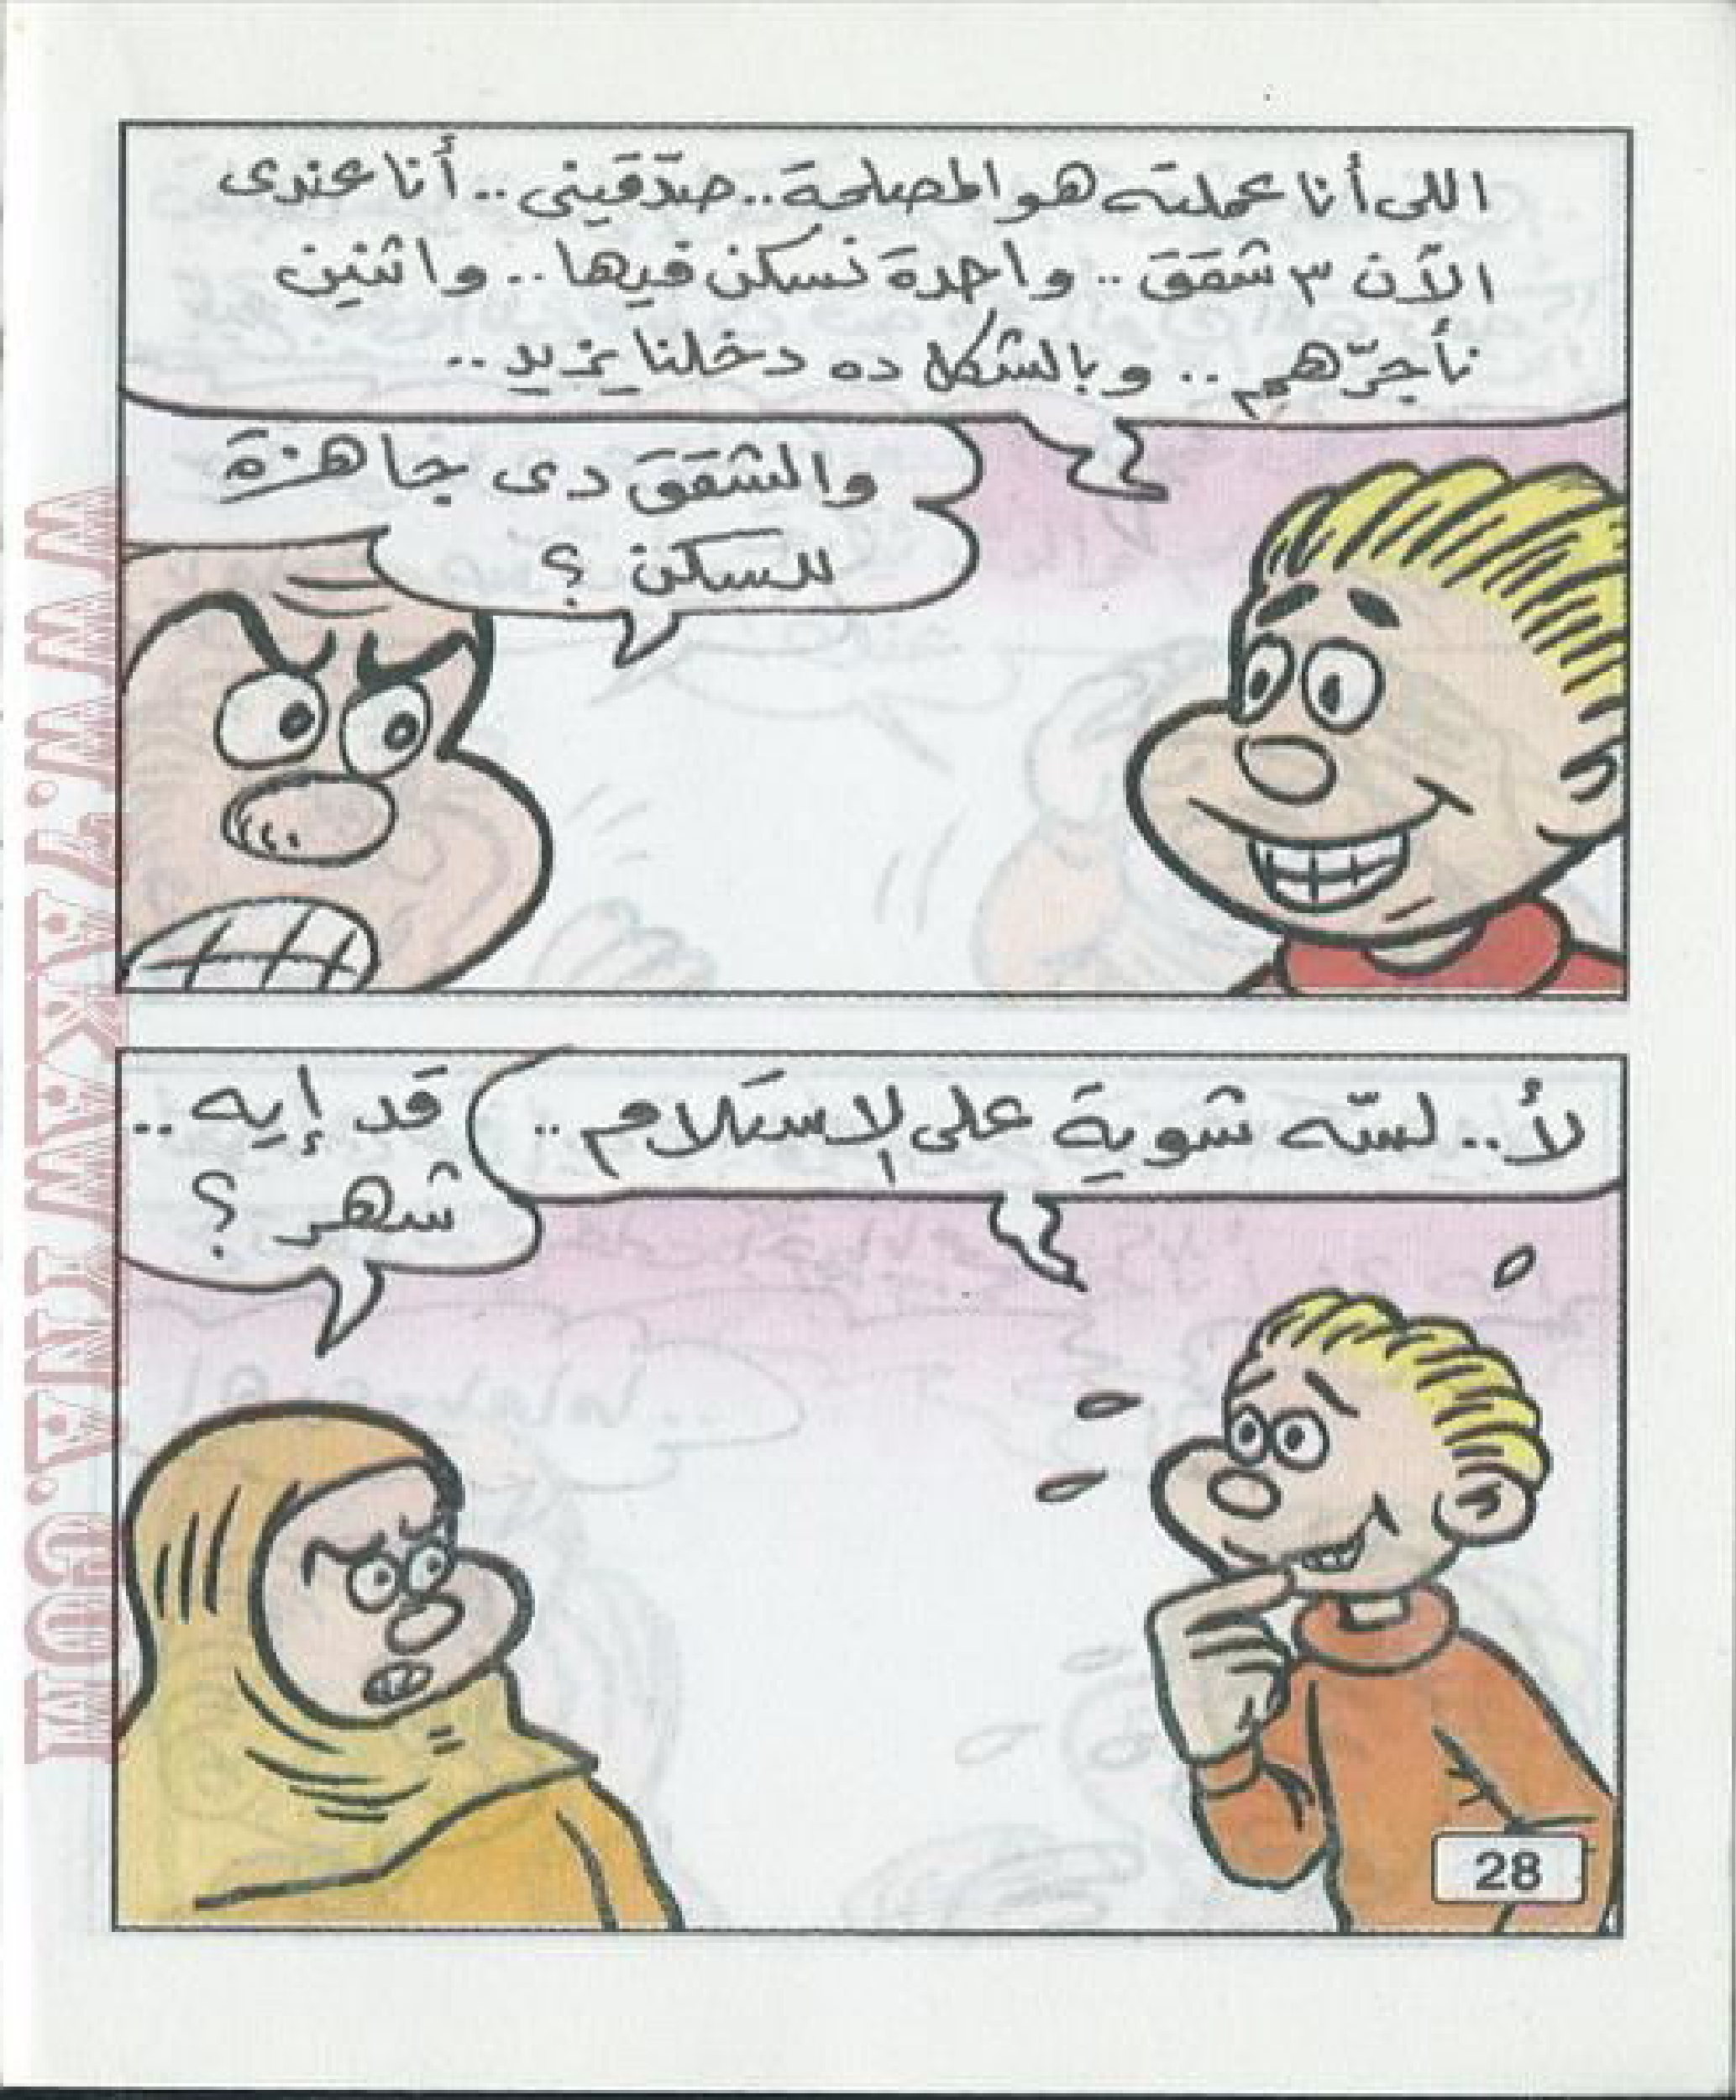 اللى أنا عملته هو المصلحة.. صدّقينى.. أنا عندى
الآن ٣ شقق.. واحدة نسكن فيها.. واثنين
نأجرّهم.. وبالشكل ده دخلنا يزيد..
والشقق دى جاهزة
للسكن؟
لأ.. لسّه شوية على الإستلام..
قد إيه..
شهر؟
28
WWW.7AKAWINA.COM